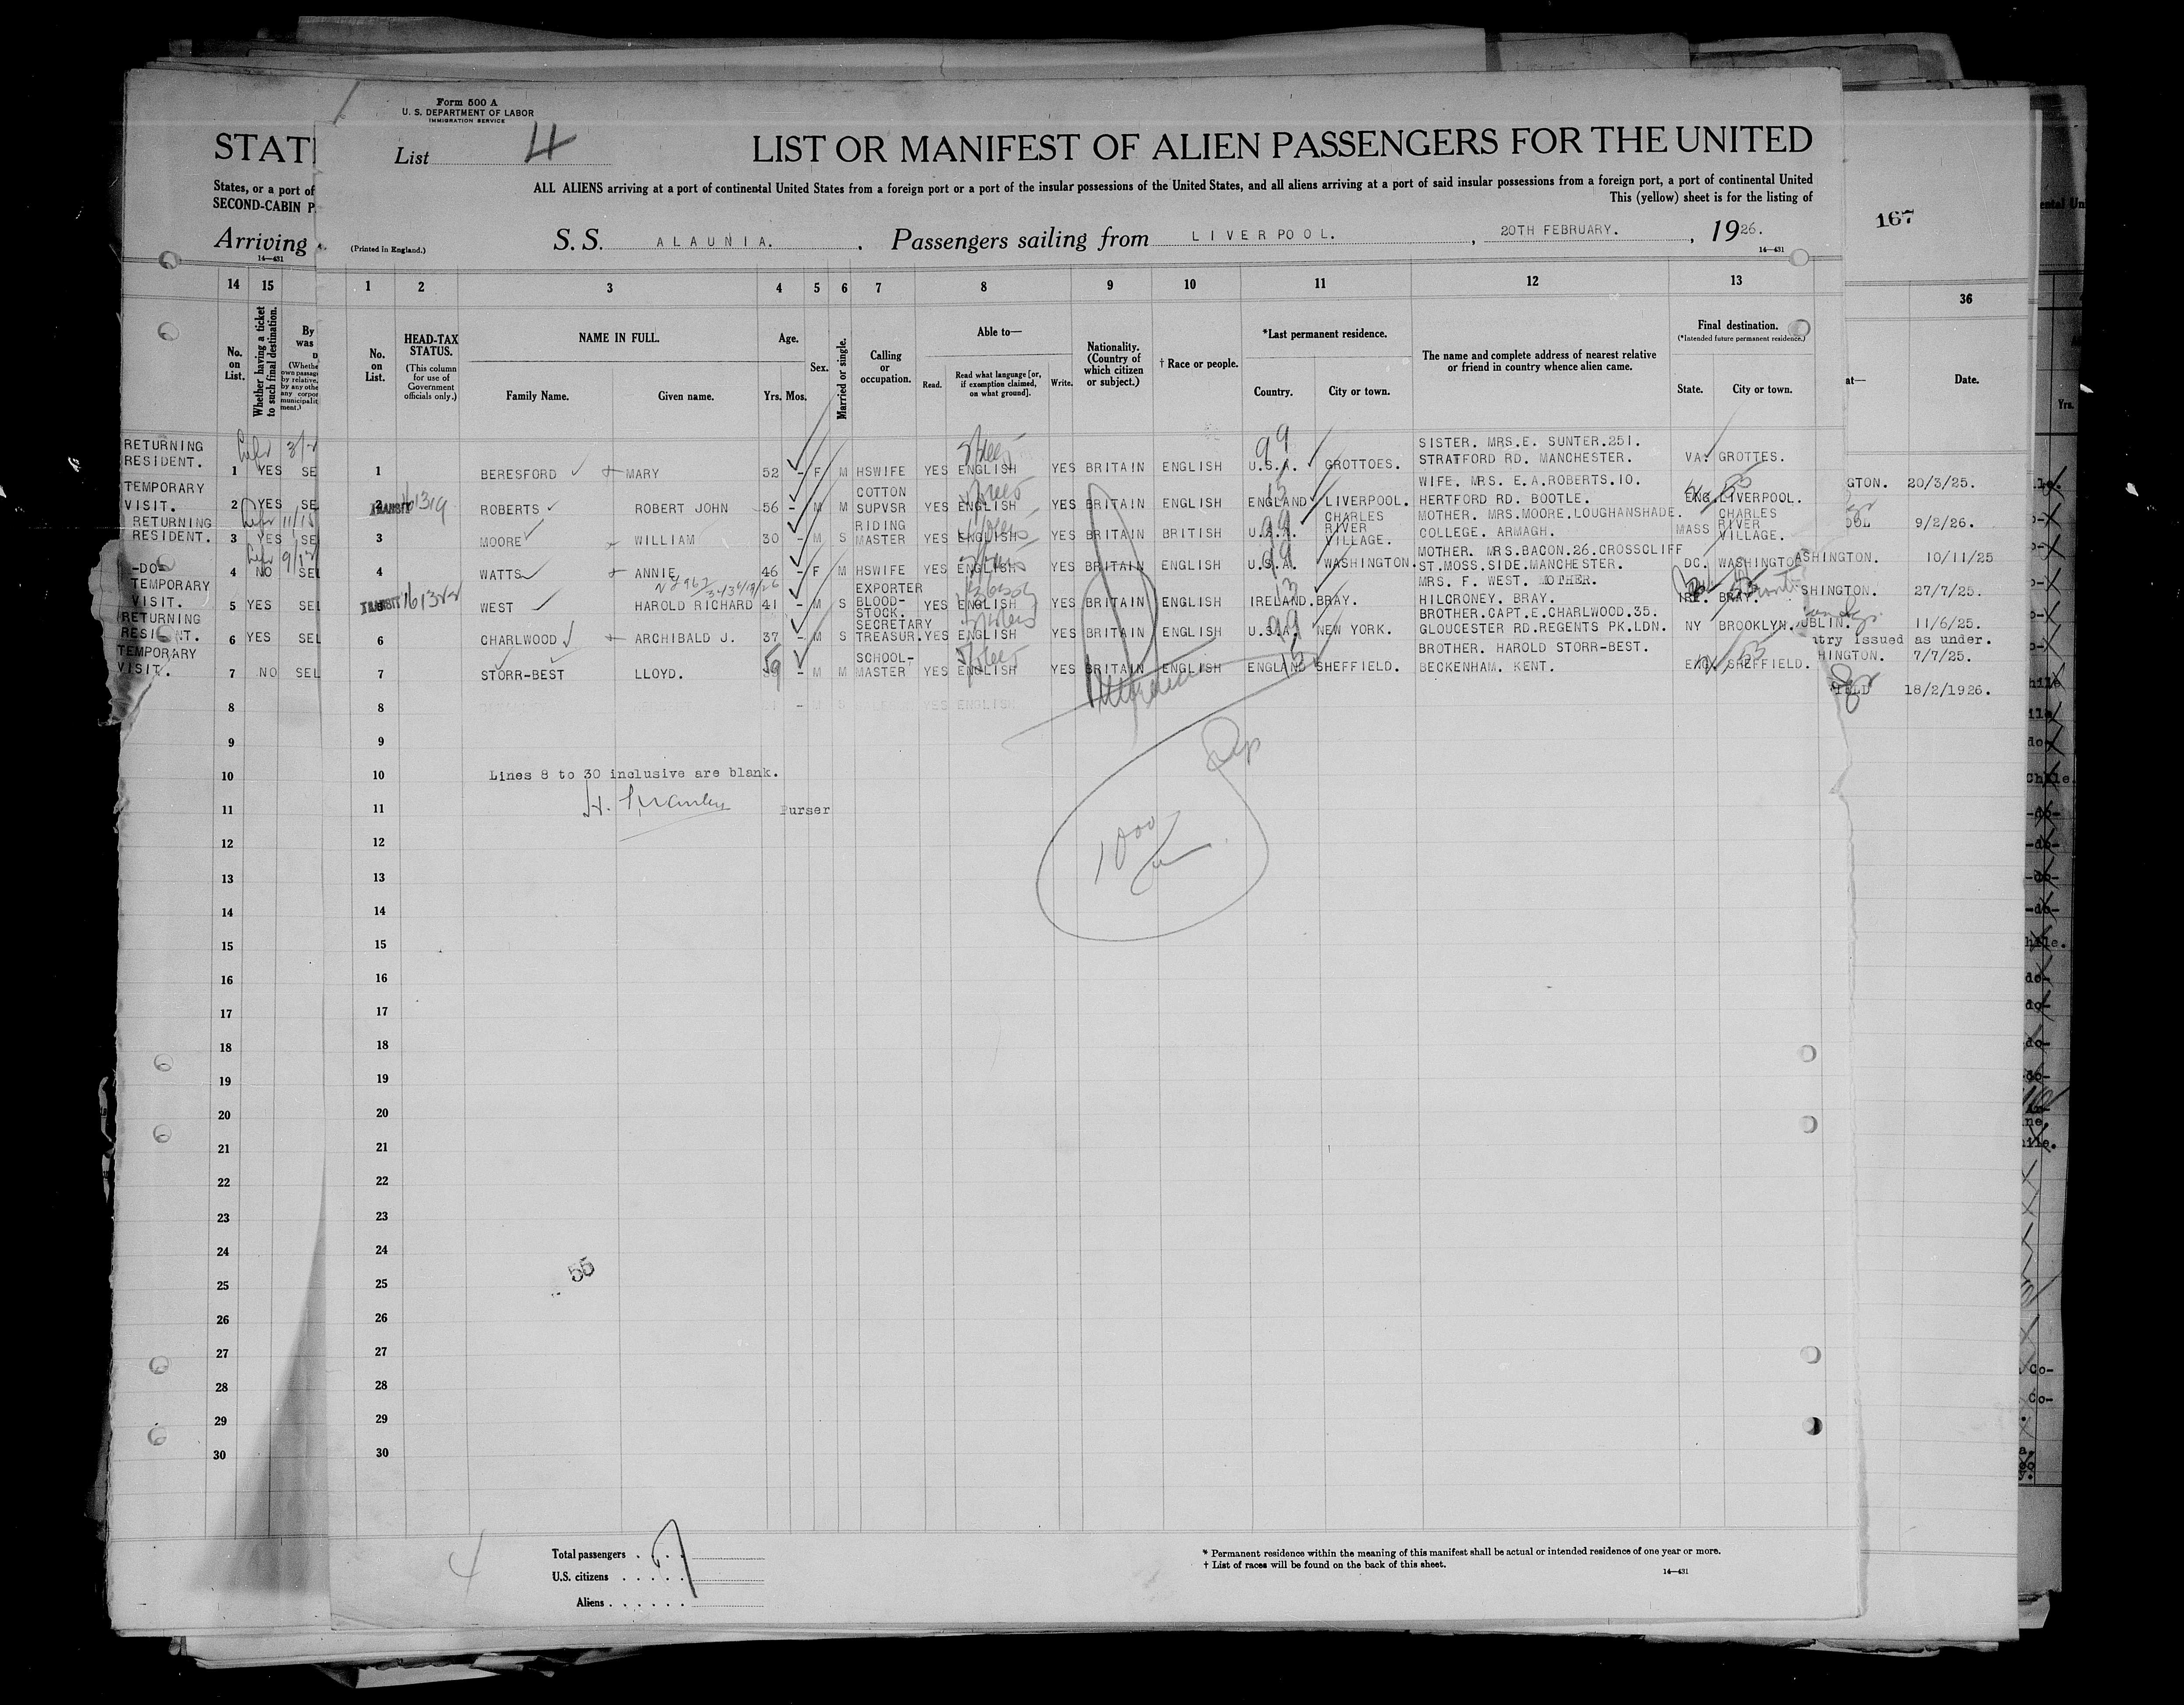 Form 500 A
U. S. DEPARTMENT OF LABOR
IMMIGRATION SERVICE
STAT
List 4
LIST OR MANIFEST OF ALIEN PASSENGERS FOR THE UNITED
States, or a port of
SECOND-CABIN P
ALL ALIENS arriving at a port of continental United States from a foreign port or a port of the insular possessions of the United States, and all aliens arriving at a port of said insular possessions from a foreign port, a port of continental United
This (yellow) sheet is for the listing of
167
Arriving
14—431
(Printed in England.)
S. S. ALAUNIA. , Passengers sailing from LIVERPOOL. , 20TH FEBRUARY. , 1926.
14—431
14 15 1 2 3 4 5 6 7 8 9 10 11 12 13 36
No. on List.
Whether having a ticket to such final destination.
By was
No. on List.
HEAD-TAX STATUS.
(This column for use of Government officials only.)
NAME IN FULL.
Family Name. Given name.
Age.
Yrs. Mos.
Sex.
Married or single.
Calling or occupation.
Able to—
Read. Read what language [or, if exemption claimed, on what ground]. Write.
Nationality. (Country of which citizen or subject.)
† Race or people.
*Last permanent residence.
Country. City or town.
The name and complete address of nearest relative or friend in country whence alien came.
Final destination.
(*Intended future permanent residence.)
State. City or town.
at— Date.
Yrs.
RETURNING RESIDENT. 1 YES SE
1 BERESFORD MARY 52 - F M HSWIFE YES ENGLISH YES BRITAIN ENGLISH U.S.A. GROTTOES. SISTER. MRS.E. SUNTER.251. STRATFORD RD. MANCHESTER. VA. GROTTES.
GTON. 20/3/25.
TEMPORARY VISIT. 2 YES SE
2 TRANSIT 161319 ROBERTS ROBERT JOHN 56 - M M COTTON SUPVSR YES ENGLISH YES BRITAIN ENGLISH ENGLAND LIVERPOOL. WIFE. MRS. E.A.ROBERTS.10. HERTFORD RD. BOOTLE. ENG. LIVERPOOL.
OOL 9/2/26.
RETURNING RESIDENT. 3 YES SE
3 MOORE WILLIAM 30 - M S RIDING MASTER YES ENGLISH YES BRITAIN BRITISH U.S.A. CHARLES RIVER VILLAGE. MOTHER. MRS.MOORE.LOUGHANSHADE. COLLEGE. ARMAGH. MASS CHARLES RIVER VILLAGE.
ASHINGTON. 10/11/25
-DO- 4 NO SEL
4 WATTS ANNIE 46 - F M HSWIFE YES ENGLISH YES BRITAIN ENGLISH U.S.A. WASHINGTON. MOTHER. MRS.BACON.26.CROSSCLIFF ST.MOSS.SIDE.MANCHESTER. DC. WASHINGTON
SHINGTON. 27/7/25.
TEMPORARY VISIT. 5 YES SEL
5 TRANSIT 161322 WEST HAROLD RICHARD 41 - M S EXPORTER BLOOD-STOCK. YES ENGLISH YES BRITAIN ENGLISH IRELAND. BRAY. MRS. F. WEST. MOTHER. HILCRONEY. BRAY. IRE. BRAY.
UBLIN. 11/6/25.
RETURNING RESIDENT. 6 YES SEL
6 CHARLWOOD ARCHIBALD J. 37 - M S SECRETARY TREASUR. YES ENGLISH YES BRITAIN ENGLISH U.S.A. NEW YORK. BROTHER.CAPT.E.CHARLWOOD.35. GLOUCESTER RD.REGENTS PK.LDN. NY BROOKLYN.
ntry Issued as under.
HINGTON. 7/7/25.
TEMPORARY VISIT. 7 NO SEL
7 STORR-BEST LLOYD. 59 - M M SCHOOL-MASTER YES ENGLISH YES BRITAIN ENGLISH ENGLAND SHEFFIELD. BROTHER. HAROLD STORR-BEST. BECKENHAM. KENT. ENG. SHEFFIELD.
IELD 18/2/1926.
8 8
9 9
10 10 Lines 8 to 30 inclusive are blank.
11 11 Purser
12 12
13 13
14 14
15 15
16 16
17 17
18 18
19 19
20 20
21 21
22 22
23 23
24 24
55
25 25
26 26
27 27
28 28
29 29
30 30
4
Total passengers . . . 7
U.S. citizens . . . . .
Aliens . . . . . .
* Permanent residence within the meaning of this manifest shall be actual or intended residence of one year or more.
† List of races will be found on the back of this sheet.
14—431